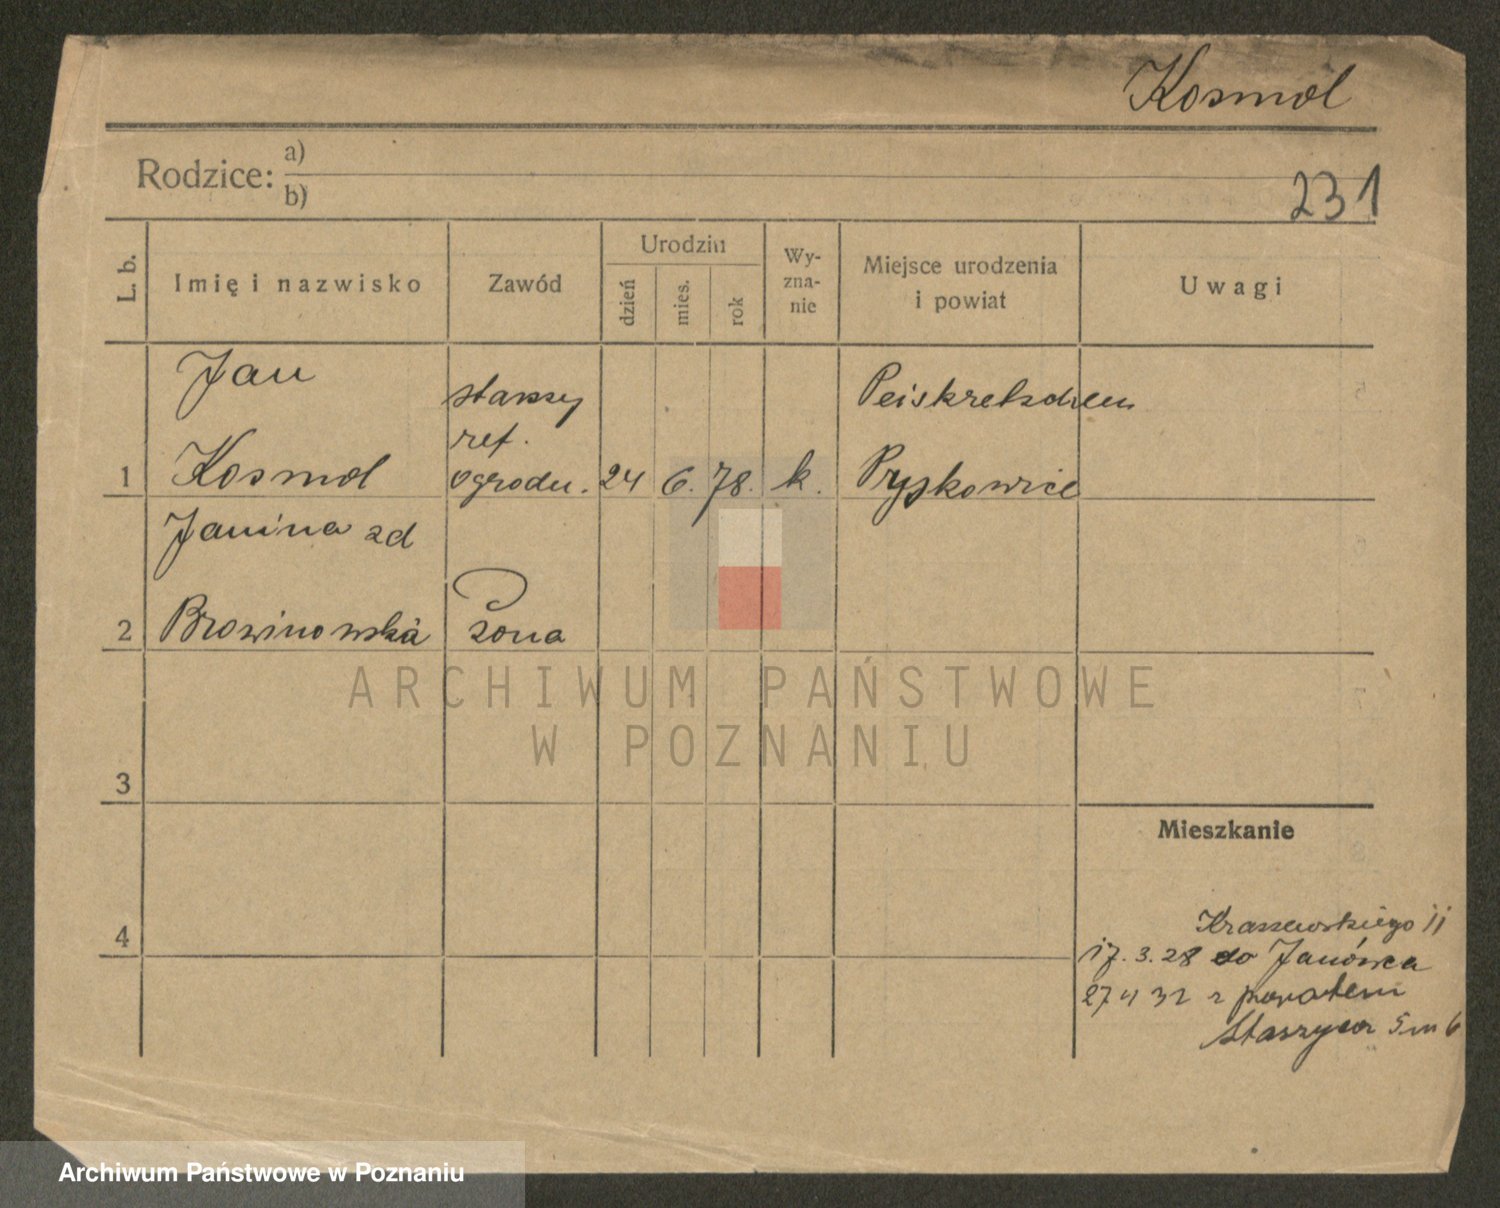 Kosmol
Rodzice: a)
b)
231
L. b.
Imię i nazwisko
Zawód
Urodzin
dzień
mies.
rok
Wy-
zna-
nie
Miejsce urodzenia
i powiat
Uwagi
Jan
starszy
Peiskretschem
ref.
1 Kosmol ogrodn. 24 6. 78. k. Pyskowice
Janina zd
2 Browinowska żona
ARCHIWUM PAŃSTWOWE
W POZNANIU
3
Mieszkanie
4
Kraszewskiego 11
17.3.28 do Janówca
27 4 32 z powrotem
Staszyca 5 m 6
Archiwum Państwowe w Poznaniu